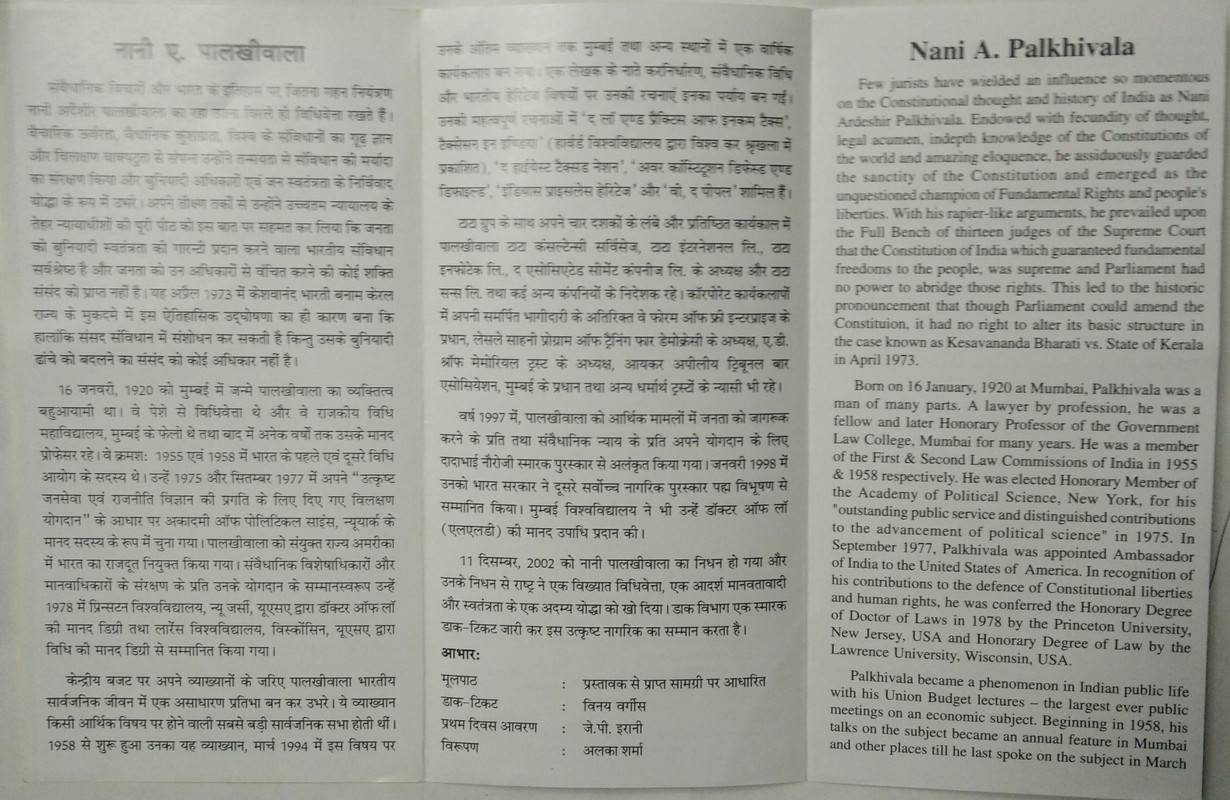 नानी ए. पालखीवाला
संवैधानिक विचारों और भारत के इतिहास पर जितना गहन नियंत्रण
नानी अर्देशीर पालखीवाला का रहा उतना बिरले ही विधिवेत्ता रखते हैं।
वैचारिक उर्वरता, वैधानिक कुशाग्रता, विश्व के संविधानों का गूढ़ ज्ञान
और विलक्षण वाक्पटुता से संपन्न उन्होंने तन्मयता से संविधान की मर्यादा
का संरक्षण किया और बुनियादी अधिकारों एवं जन स्वतंत्रता के निर्विवाद
योद्धा के रूप में उभरे। अपने तीक्ष्ण तर्कों से उन्होंने उच्चतम न्यायालय के
तेहर न्यायाधीशों की पूरी पीठ को इस बात पर सहमत कर लिया कि जनता
को बुनियादी स्वतंत्रता की गारन्टी प्रदान करने वाला भारतीय संविधान
सर्वश्रेष्ठ है और जनता को उन अधिकारों से वंचित करने की कोई शक्ति
संसद को प्राप्त नहीं है। यह अप्रैल 1973 में केशवानंद भारती बनाम केरल
राज्य के मुकदमे में इस ऐतिहासिक उद्घोषणा का ही कारण बना कि
हालांकि संसद संविधान में संशोधन कर सकती है किन्तु उसके बुनियादी
ढांचे को बदलने का संसद को कोई अधिकार नहीं है।
16 जनवरी, 1920 को मुम्बई में जन्मे पालखीवाला का व्यक्तित्व
बहुआयामी था। वे पेशे से विधिवेत्ता थे और वे राजकीय विधि
महाविद्यालय, मुम्बई के फेलो थे तथा बाद में अनेक वर्षों तक उसके मानद
प्रोफेसर रहे। वे क्रमश: 1955 एवं 1958 में भारत के पहले एवं दूसरे विधि
आयोग के सदस्य थे। उन्हें 1975 और सितम्बर 1977 में अपने "उत्कृष्ट
जनसेवा एवं राजनीति विज्ञान की प्रगति के लिए दिए गए विलक्षण
योगदान" के आधार पर अकादमी ऑफ पोलिटिकल साइंस, न्यूयार्क के
मानद सदस्य के रूप में चुना गया। पालखीवाला को संयुक्त राज्य अमरीका
में भारत का राजदूत नियुक्त किया गया। संवैधानिक विशेषाधिकारों और
मानवाधिकारों के संरक्षण के प्रति उनके योगदान के सम्मानस्वरूप उन्हें
1978 में प्रिन्सटन विश्वविद्यालय, न्यू जर्सी, यूएसए द्वारा डॉक्टर ऑफ लॉ
की मानद डिग्री तथा लारेंस विश्वविद्यालय, विस्कोंसिन, यूएसए द्वारा
विधि की मानद डिग्री से सम्मानित किया गया।
केन्द्रीय बजट पर अपने व्याख्यानों के जरिए पालखीवाला भारतीय
सार्वजनिक जीवन में एक असाधारण प्रतिभा बन कर उभरे। ये व्याख्यान
किसी आर्थिक विषय पर होने वाली सबसे बड़ी सार्वजनिक सभा होती थीं।
1958 से शुरू हुआ उनका यह व्याख्यान, मार्च 1994 में इस विषय पर
उनके अंतिम व्याख्यान तक मुम्बई तथा अन्य स्थानों में एक वार्षिक
कार्यकलाप बन गया। एक लेखक के नाते करनिर्धारण, संवैधानिक विधि
और भारतीय हेरिटेज विषयों पर उनकी रचनाएं इनका पर्याय बन गईं।
उनकी महत्वपूर्ण रचनाओं में 'द लॉ एण्ड प्रैक्टिस आफ इनकम टैक्स',
टैक्सेसन इन इण्डिया' (हार्वर्ड विश्वविद्यालय द्वारा विश्व कर श्रृंखला में
प्रकाशित), 'द हाईयेस्ट टैक्सड नेशन', 'अवर कांस्टिट्यूशन डिफेस्ड एण्ड
डिफाइल्ड', 'इंडियास प्राइसलेस हेरिटेज' और 'वी, द पीपल' शामिल हैं।
टाटा ग्रुप के साथ अपने चार दशकों के लंबे और प्रतिष्ठित कार्यकाल में
पालखीवाला टाटा कंसल्टेन्सी सर्विसेज, टाटा इंटरनेशनल लि., टाटा
इनफोटेक लि., द एसोसिएटेड सीमेंट कंपनीज लि. के अध्यक्ष और टाटा
सन्स लि. तथा कई अन्य कंपनियों के निदेशक रहे। कॉरपोरेट कार्यकलापों
में अपनी समर्पित भागीदारी के अतिरिक्त वे फोरम ऑफ फ्री इन्टरप्राइज के
प्रधान, लेसले साहनी प्रोग्राम ऑफ ट्रैनिंग फार डेमोक्रेसी के अध्यक्ष, ए.डी.
श्रॉफ मेमोरियल ट्रस्ट के अध्यक्ष, आयकर अपीलीय ट्रिबूनल बार
एसोसियेशन, मुम्बई के प्रधान तथा अन्य धर्मार्थ ट्रस्टों के न्यासी भी रहे।
वर्ष 1997 में, पालखीवाला को आर्थिक मामलों में जनता को जागरूक
करने के प्रति तथा संवैधानिक न्याय के प्रति अपने योगदान के लिए
दादाभाई नौरोजी स्मारक पुरस्कार से अलंकृत किया गया। जनवरी 1998 में
उनको भारत सरकार ने दूसरे सर्वोच्च नागरिक पुरस्कार पद्म विभूषण से
सम्मानित किया। मुम्बई विश्वविद्यालय ने भी उन्हें डॉक्टर ऑफ लॉ
(एलएलडी) की मानद उपाधि प्रदान की।
11 दिसम्बर, 2002 को नानी पालखीवाला का निधन हो गया और
उनके निधन से राष्ट्र ने एक विख्यात विधिवेत्ता, एक आदर्श मानवतावादी
और स्वतंत्रता के एक अदम्य योद्धा को खो दिया। डाक विभाग एक स्मारक
डाक-टिकट जारी कर इस उत्कृष्ट नागरिक का सम्मान करता है।
आभार:
मूलपाठ : प्रस्तावक से प्राप्त सामग्री पर आधारित
डाक-टिकट : विनय वर्गीस
प्रथम दिवस आवरण : जे.पी. इरानी
विरूपण : अलका शर्मा
Nani A. Palkhivala
Few jurists have wielded an influence so momentous
on the Constitutional thought and history of India as Nani
Ardeshir Palkhivala. Endowed with fecundity of thought,
legal acumen, indepth knowledge of the Constitutions of
the world and amazing eloquence, he assiduously guarded
the sanctity of the Constitution and emerged as the
unquestioned champion of Fundamental Rights and people's
liberties. With his rapier-like arguments, he prevailed upon
the Full Bench of thirteen judges of the Supreme Court
that the Constitution of India which guaranteed fundamental
freedoms to the people, was supreme and Parliament had
no power to abridge those rights. This led to the historic
pronouncement that though Parliament could amend the
Constituion, it had no right to alter its basic structure in
the case known as Kesavananda Bharati vs. State of Kerala
in April 1973.
Born on 16 January, 1920 at Mumbai, Palkhivala was a
man of many parts. A lawyer by profession, he was a
fellow and later Honorary Professor of the Government
Law College, Mumbai for many years. He was a member
of the First & Second Law Commissions of India in 1955
& 1958 respectively. He was elected Honorary Member of
the Academy of Political Science, New York, for his
"outstanding public service and distinguished contributions
to the advancement of political science" in 1975. In
September 1977, Palkhivala was appointed Ambassador
of India to the United States of America. In recognition of
his contributions to the defence of Constitutional liberties
and human rights, he was conferred the Honorary Degree
of Doctor of Laws in 1978 by the Princeton University,
New Jersey, USA and Honorary Degree of Law by the
Lawrence University, Wisconsin, USA.
Palkhivala became a phenomenon in Indian public life
with his Union Budget lectures – the largest ever public
meetings on an economic subject. Beginning in 1958, his
talks on the subject became an annual feature in Mumbai
and other places till he last spoke on the subject in March